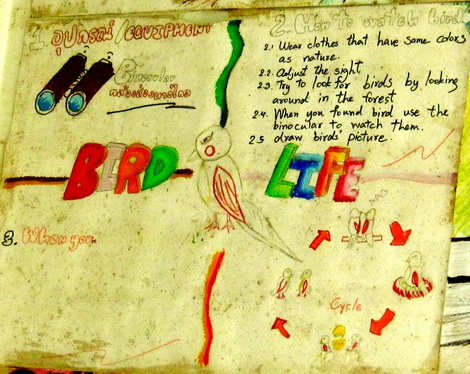 1. อุปกรณ์/EQUIPMENT
Binocular
กล้องส่องทางไกล
2. How to watch bird
2.1 Wear clothes that have some colors
as nature.
2.2. Adjust the sight
2.3. Try to look for birds by looking
around in the forest
2.4. When you found bird use the
binocular to watch them.
2.5 draw birds' picture.
BIRD LIFE
3. When you
Cycle